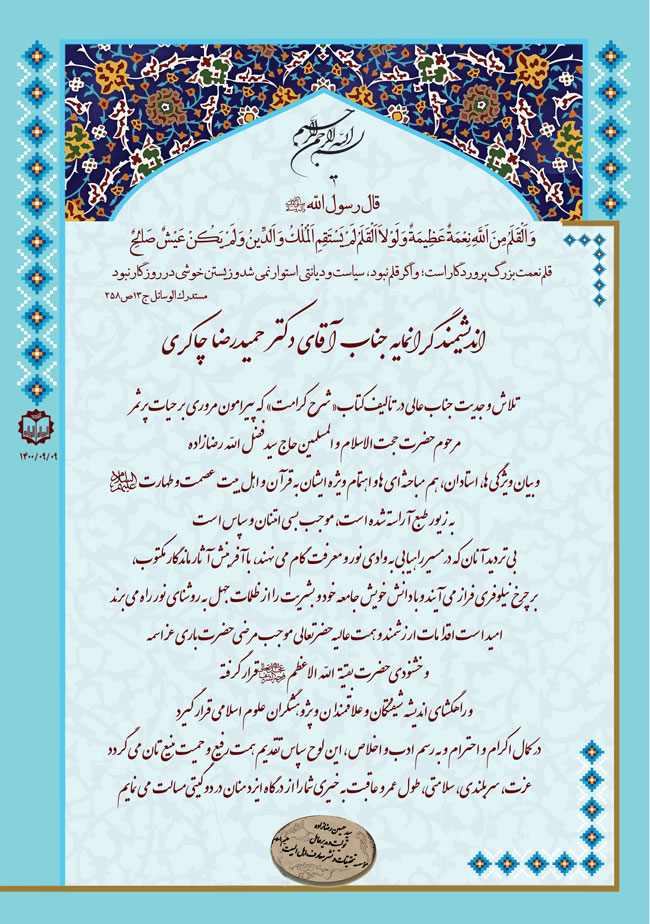 بسم الله الرحمن الرحیم
قال رسول الله ﷺ
وَالْقَلَمُ مِنَ اللَّهِ نِعْمَةٌ عَظِيمَةٌ وَلَوْلَا الْقَلَمُ لَمْ يَسْتَقِمِ الْمُلْكُ وَالدِّينُ وَلَمْ يَكُنْ عَيْشٌ صَالِحٌ
قلم نعمت بزرگ پروردگار است؛ و اگر قلم نبود، سیاست و دیانتی استوار نمی شد و زیستن خوشی در روزگار نبود
مستدرك الوسائل ج ۱۳ ص ۲۵۸
اندیشمند گرانمایه جناب آقای دکتر حمیدرضا چاکری
تلاش و جدیت جناب عالی در تالیف کتاب « شرح کرامت » که پیرامون مروری بر حیات پر ثمر
مرحوم حضرت حجت الاسلام و المسلمین حاج سید فضل الله رضازاده
و بیان ویژگی ها، استادان، هم مباحثه ای ها و اهتمام ویژه ایشان به قرآن و اهل بیت عصمت و طهارت علیهم السلام
به زیور طبع آراسته شده است، موجب بسی امتنان و سپاس است
بی تردید آنان که در مسیر راهیابی به وادی نور و معرفت گام می نهند، با آفرینش آثار ماندگار مکتوب،
بر چرخ نیلوفری فراز می آیند و با دانش خویش جامعه خود و بشریت را از ظلمات جهل به روشنای نور راه می برند
امید است اقدامات ارزشمند و همت عالیه حضرتعالی موجب مرضی حضرت باری عز اسمه
و خشنودی حضرت بقیة الله الاعظم قرار گرفته
و راهگشای اندیشه شیفتگان و علاقمندان و پژوهشگران علوم اسلامی قرار گیرد
در کمال اکرام و احترام و به رسم ادب و اخلاص، این لوح سپاس تقدیم همت رفیع و حمیت منیع تان می گردد
عزت، سربلندی، سلامتی، طول عمر و عاقبت به خیری شما را از درگاه ایزد منان در دو گیتی مسالت می نمایم
سید حسین رضازاده
تولیت و مدیرعامل
موسسه تحقیقات و نشر معارف اهل البیت علیهم السلام
۱۴۰۰/۰۹/۰۹